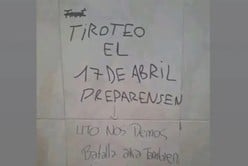 TIROTEO
EL
17 DE ABRIL
PREPARENSEN
UTO Nos Demos
Batalla aka Tambien